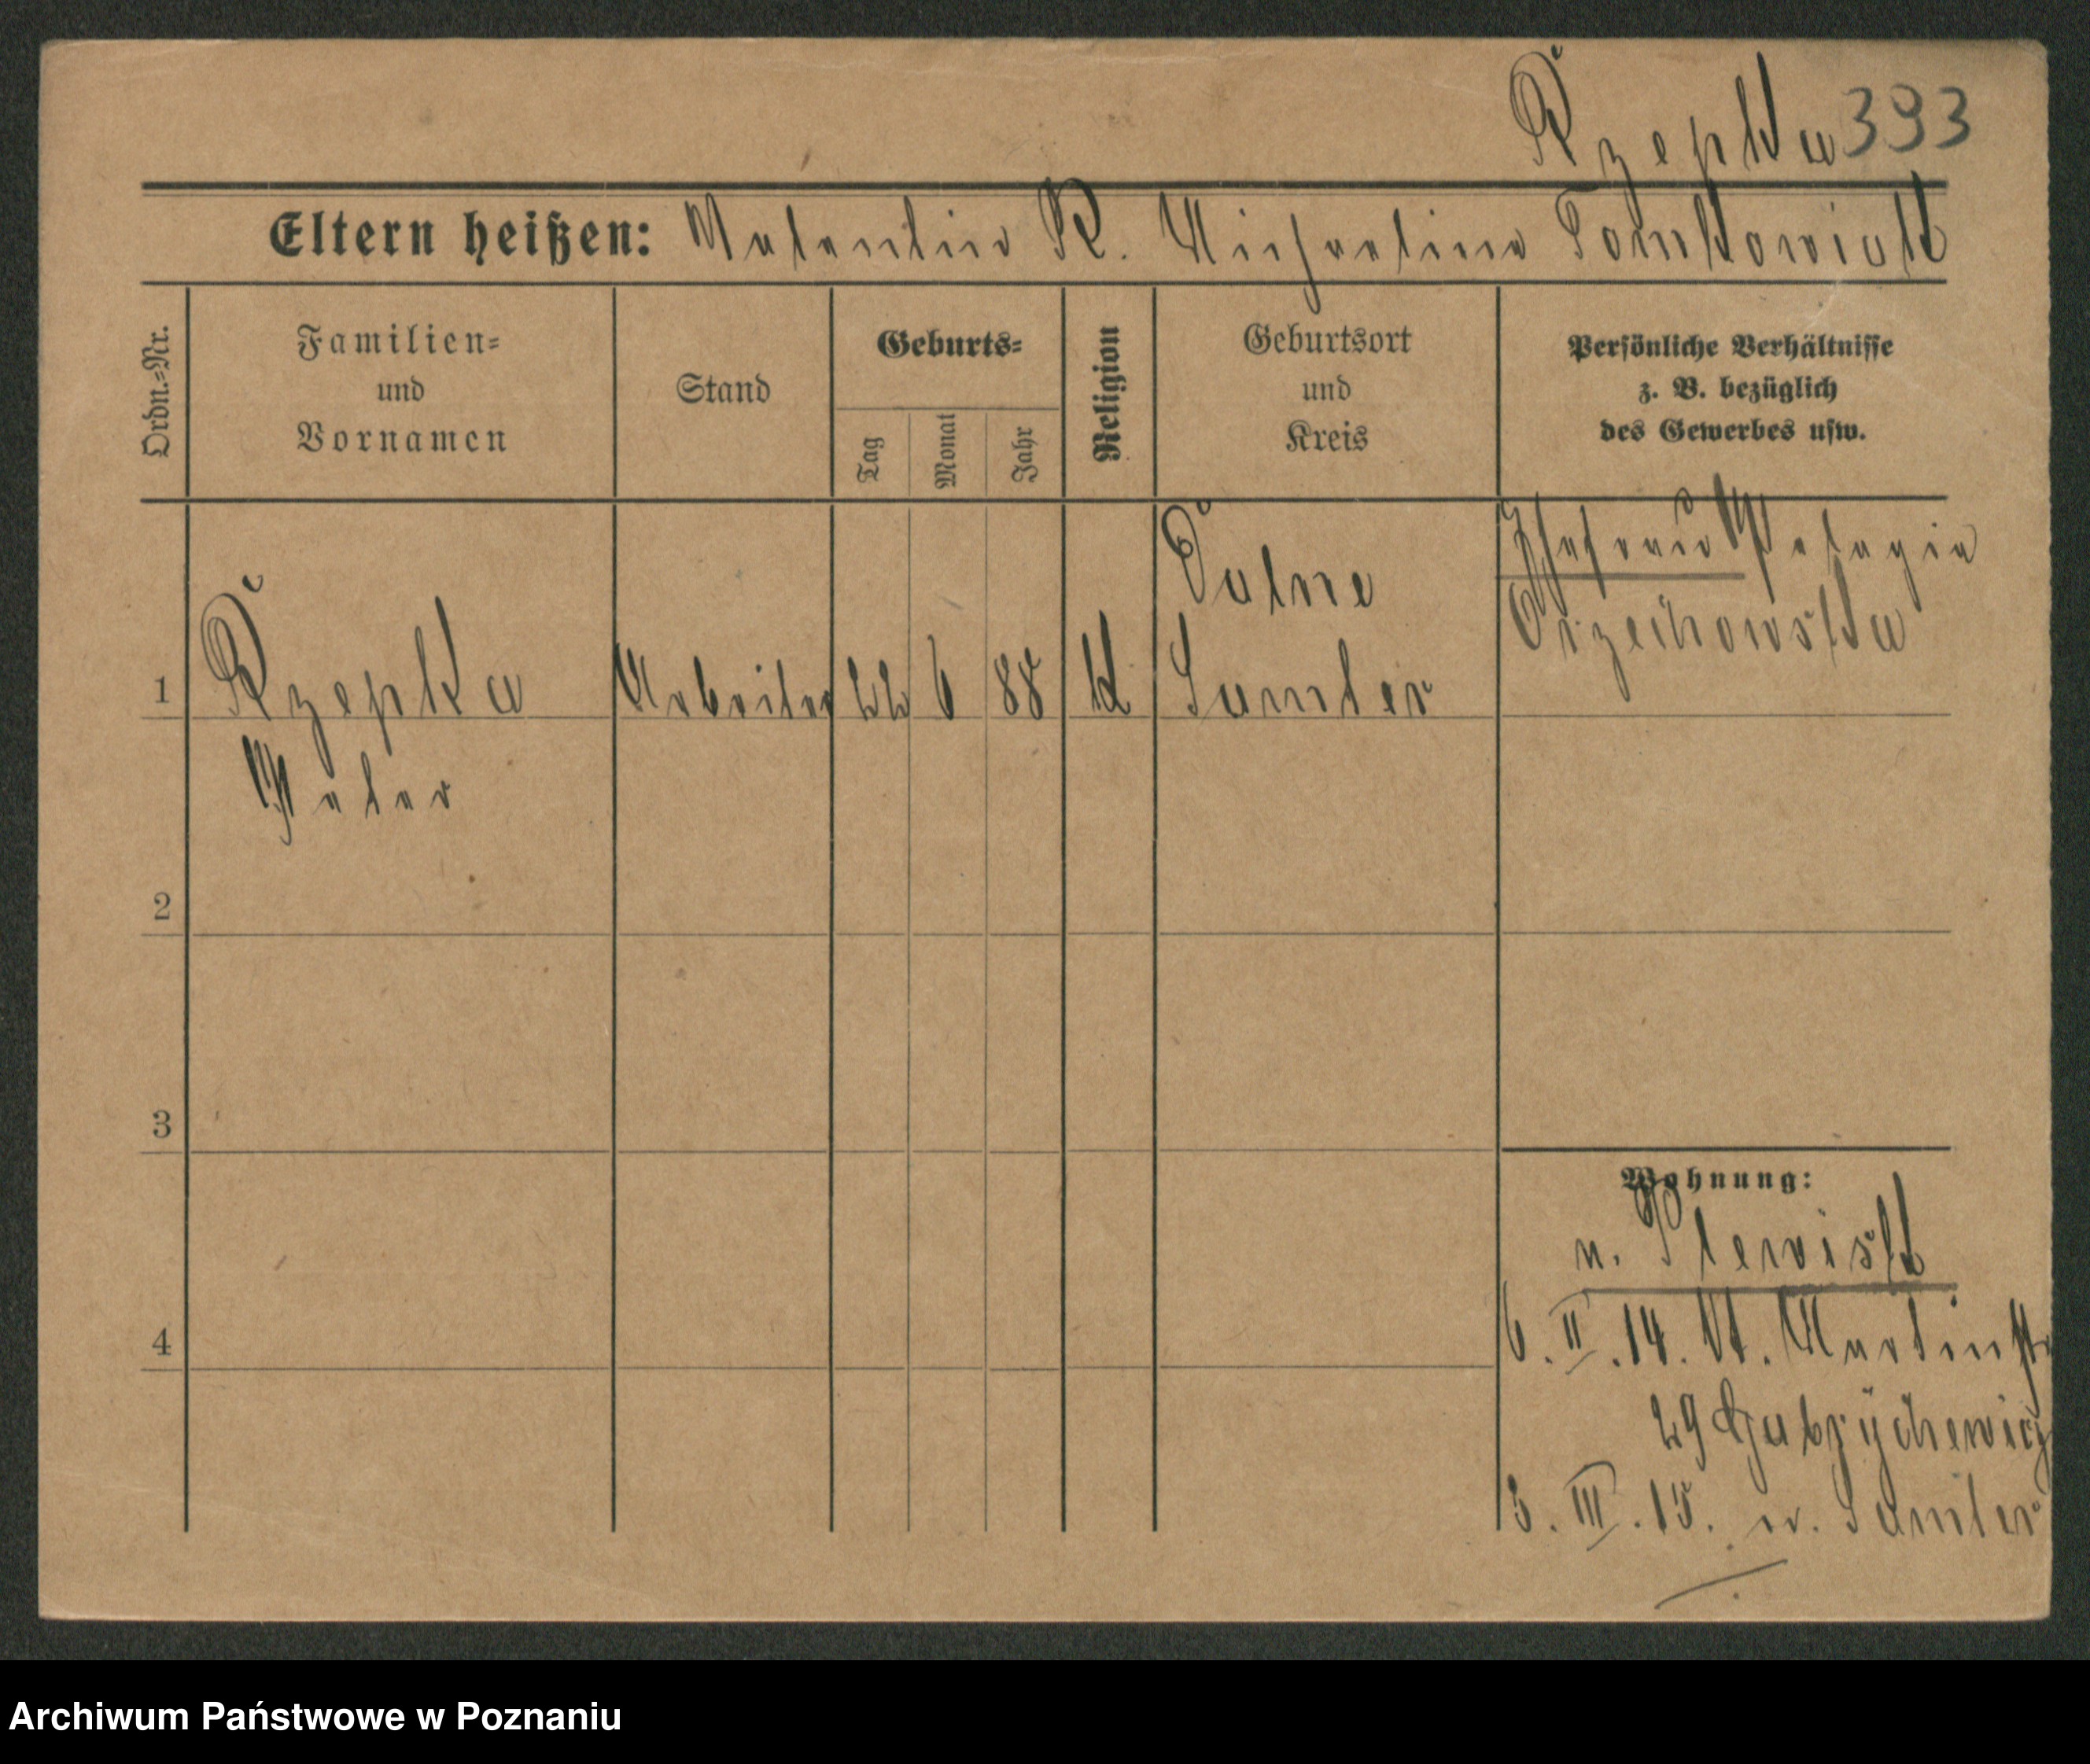 Rzepka 393
Eltern heißen: Valentin R. Michaelina Tomkowiak
Ordn.-Nr.
Familien-
und
Vornamen
Stand
Geburts-
Tag
Monat
Jahr
Religion
Geburtsort
und
Kreis
Persönliche Verhältnisse
z. B. bezüglich
des Gewerbes usw.
1
Rzepka
Peter
Arbeiter
22
6
88
k
Samter
Ehefrau Pelagia
Orzechowska
2
3
4
Wohnung:
n. Plewisk
6.II.14. St. Martinstr
29 Gabrychewicz
3.III.15. n. Samter
Archiwum Państwowe w Poznaniu